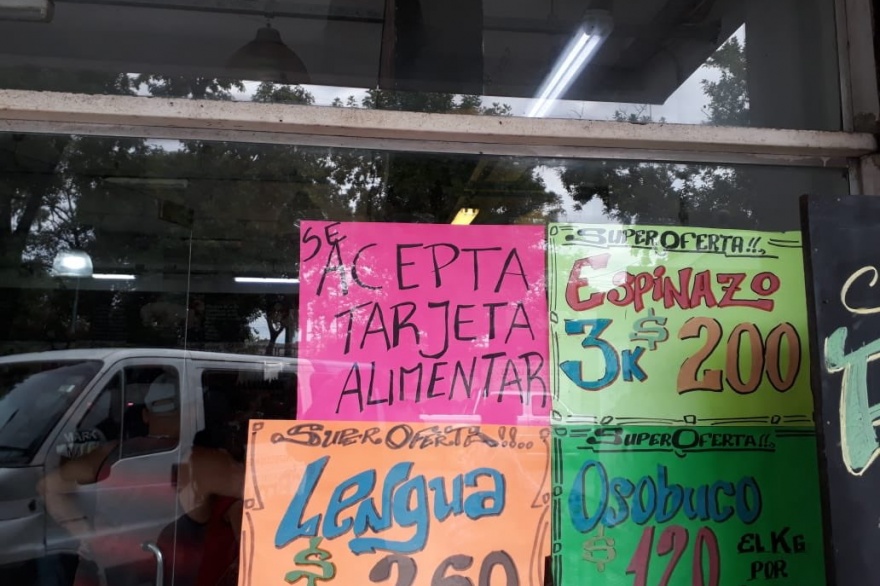 SE
ACEPTA
TARJETA
ALIMENTAR
SUPER OFERTA!!.
ESPINAZO
3K $200
SUPER OFERTA!!..
LENGUA
$260
SUPER OFERTA!!.
OSOBUCO
$120 EL KG
POR